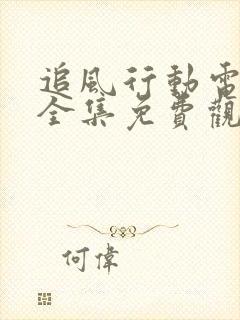 追風行動電
全集免費觀
何偉